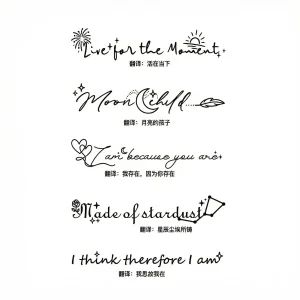 Live for the Moment
翻译：活在当下
Moon Child
翻译：月亮的孩子
I am because you are
翻译：我存在，因为你存在
Made of stardust
翻译：星辰尘埃所铸
I think therefore I am
翻译：我思故我在